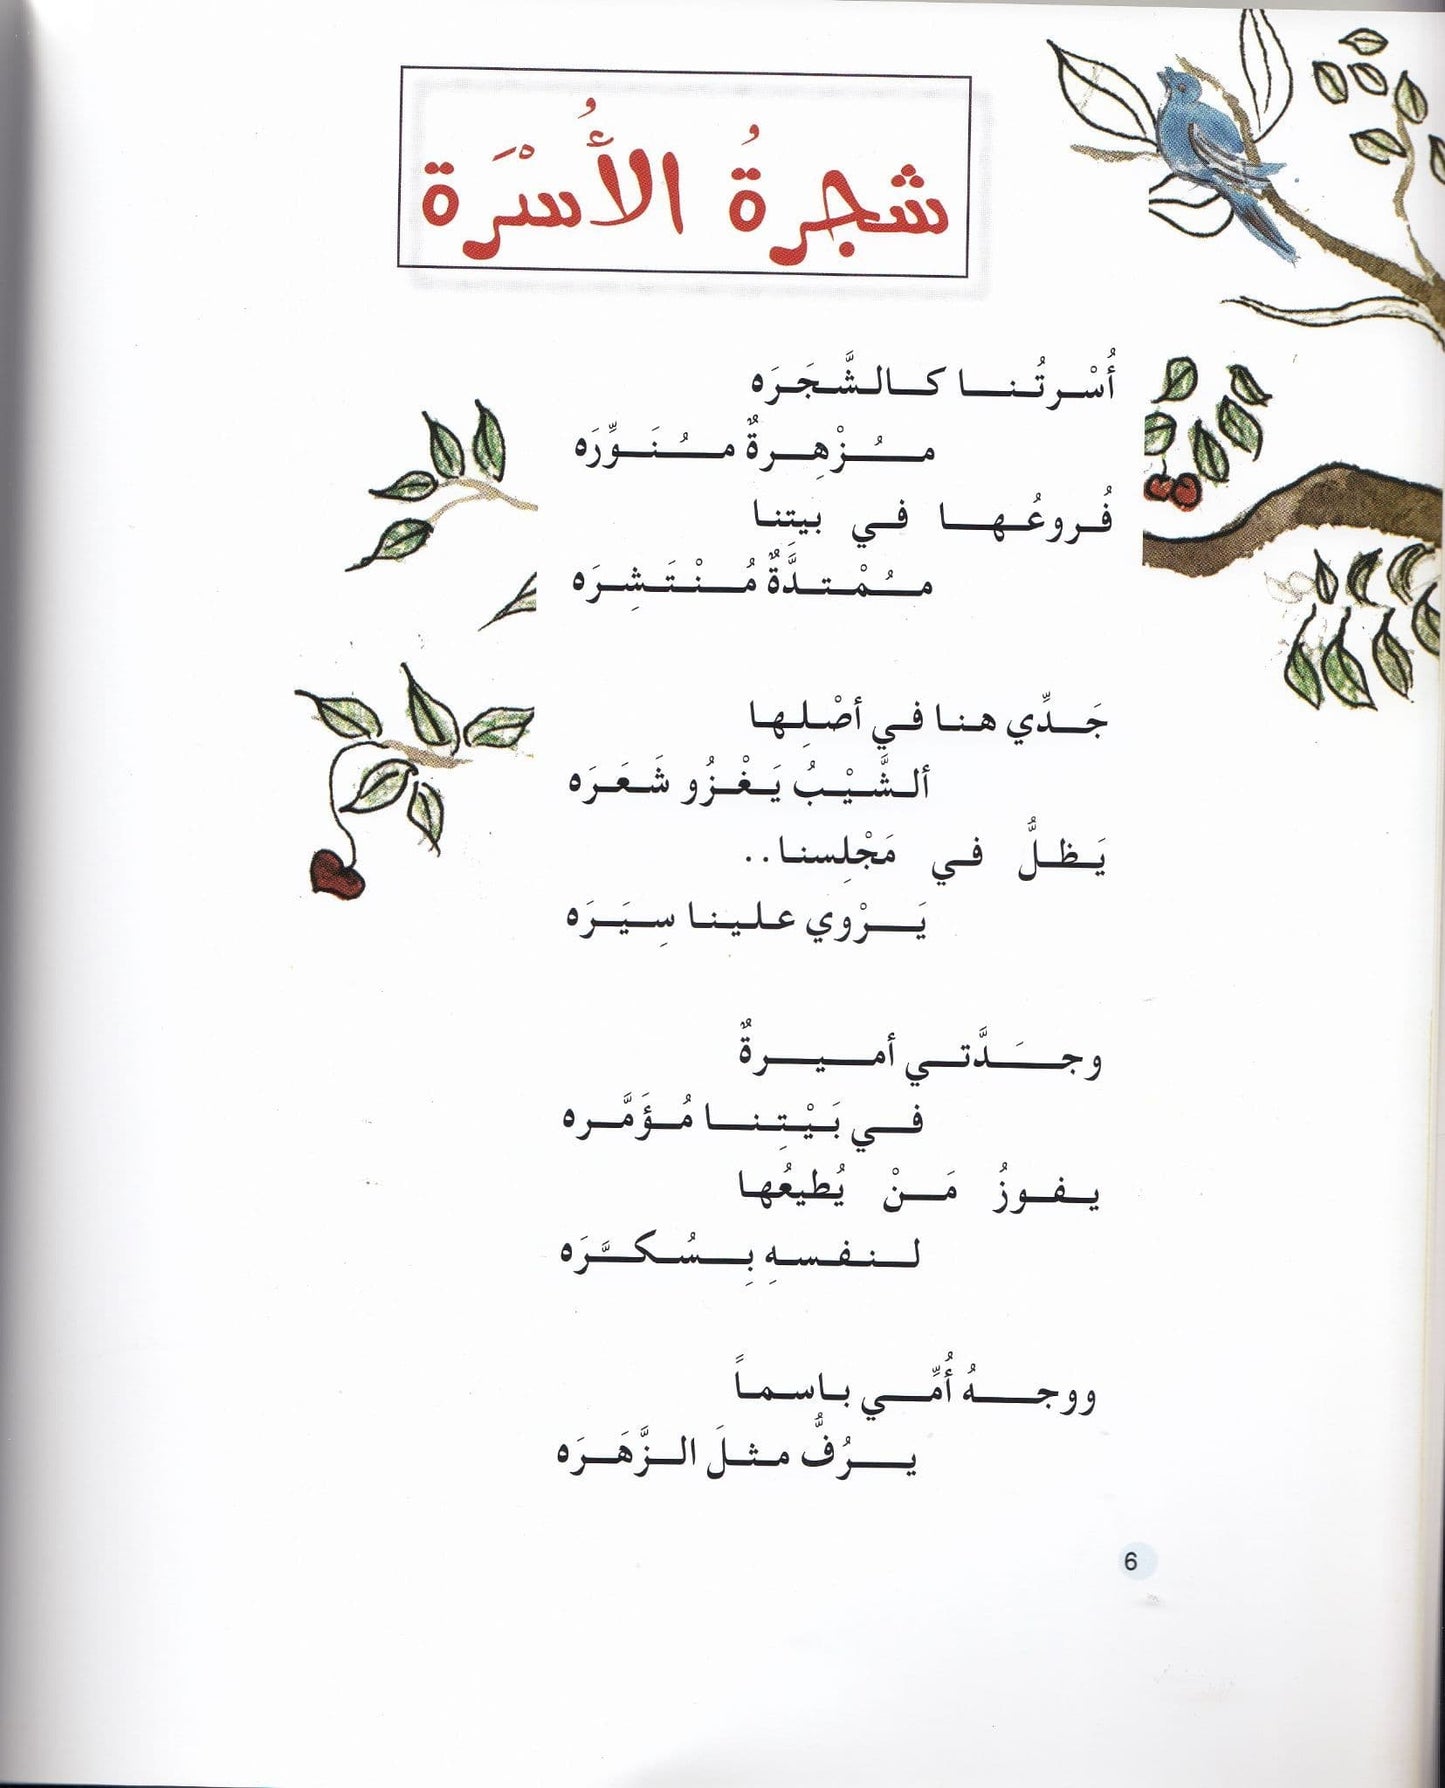 شجرةُ الأُسْرَة
أُسْرتُنا كالشَّجَرَه
مُزْهِرةٌ مُنَوِّرَه
فُروعُها في بيتِنا
مُمْتدَّةٌ مُنْتَشِرَه
جَدِّي هنا في أصْلِها
ألشَّيْبُ يَغْزُو شَعَرَه
يَظلُّ في مَجْلِسنا..
يَرْوي علينا سِيَرَه
وجَدَّتي أميرةٌ
في بَيْتِنا مُؤَمَّره
يفوزُ مَنْ يُطيعُها
لنفسهِ بِسُكَّرَه
ووجهُ أُمِّي باسماً
يرُفُّ مثلَ الزَّهَرَه
6